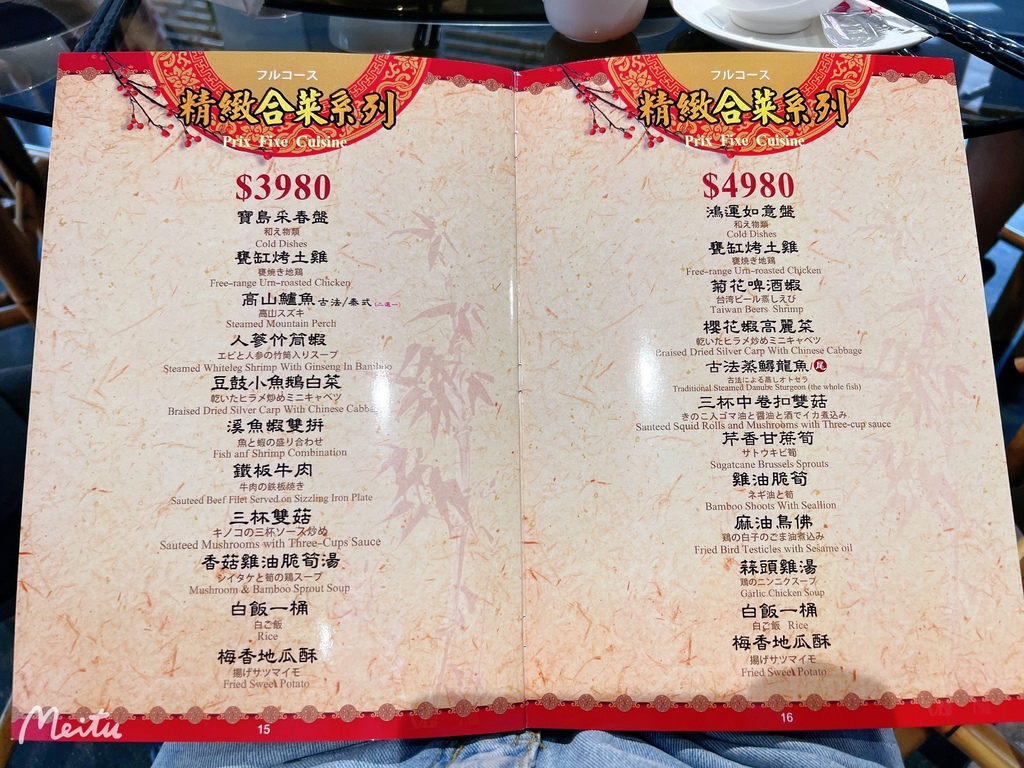 フルコース
精緻合菜系列
Prix Fixe Cuisine
$3980
寶島采春盤
和え物類
Cold Dishes
甕缸烤土雞
甕焼き地鶏
Free-range Urn-roasted Chicken
高山鱸魚古法/泰式(二選一)
高山スズキ
Steamed Mountain Perch
人蔘竹筒蝦
エビと人参の竹筒入りスープ
Steamed Whiteleg Shrimp With Ginseng In Bamboo
豆鼓小魚鵝白菜
乾いたヒラメ炒めミニキャベツ
Braised Dried Silver Carp With Chinese Cabbage
溪魚蝦雙拼
魚と蝦の盛り合わせ
Fish anf Shrimp Combination
鐵板牛肉
牛肉の鉄板焼き
Sauteed Beef Filet Served on Sizzling Iron Plate
三杯雙菇
キノコの三杯ソース炒め
Sauteed Mushrooms with Three-Cups Sauce
香菇雞油脆筍湯
シイタケと筍の鶏スープ
Mushroom & Bamboo Sprout Soup
白飯一桶
白ご飯
Rice
梅香地瓜酥
揚げサツマイモ
Fried Sweet Potato
15
フルコース
精緻合菜系列
Prix Fixe Cuisine
$4980
鴻運如意盤
和え物類
Cold Dishes
甕缸烤土雞
甕焼き地鶏
Free-range Urn-roasted Chicken
菊花啤酒蝦
台湾ビール蒸しえび
Taiwan Beers Shrimp
櫻花蝦高麗菜
乾いたヒラメ炒めミニキャベツ
Braised Dried Silver Carp With Chinese Cabbage
古法蒸鱘龍魚/尾
古法による蒸しオトセラ
Traditional Steamed Danube Sturgeon (the whole fish)
三杯中卷扣雙菇
きのこ入ゴマ油と醤油と酒でイカ煮込み
Sauteed Squid Rolls and Mushrooms with Three-cup sauce
芹香甘蔗筍
サトウキビ筍
Sugatcane Brussels Sprouts
雞油脆筍
ネギ油と筍
Bamboo Shoots With Seallion
麻油鳥佛
鶏の白子のごま油煮込み
Fried Bird Testicles with Sesame oil
蒜頭雞湯
鶏のニンニクスープ
Garlic Chicken Soup
白飯一桶
白ご飯 Rice
梅香地瓜酥
揚げサツマイモ
Fried Sweet Potato
16
Meitu